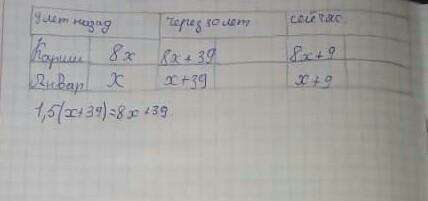 9 лет назад через 30 лет сейчас
Карим 8x 8x+39 8x+9
Январ x x+39 x+9
1,5(x+39)=8x+39